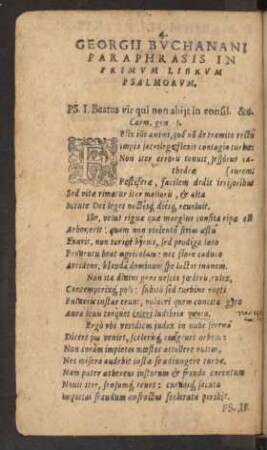 4.
GEORGII BVCHANANI
PARAPHRASIS IN
PRIMVM LIBRVM
PSALMORVM.
PS. I. Beatus vir qui non abijt in consil. &c.
Carm. gen
FElix ille animi, quem nō de tramite rectū
impia sacrilegæ flexit contagio turbæ:
Non iter erroris tenuit,
thedræ
Pestiferæ, facilem dedit irrisoribus
Sed vitæ rimatur iter melioris, & alta
Mente Dei leges noctésq, diésq, reuoluit.
Ille, velut riguæ quæ margine consita ripæ est
Arbor, erit: quam non violento sirius æstu
Exurit, non torret hyems, sed prodiga læto
Prouentu beat agricolam: nec flore caduco
Arridens, blanda dominum spe lactat inanem.
Non ita diuini gens nescia fœderis, exlex,
Contemptrixq, poli: subitò sed turbine rapti
Pulueris instar erunt, volucri quem concita gyro
Aura leuis torquet
Ergò vbi veridicus iudex in nube serena
Dicere ius veniet, scelerúmq,
Non coram impietas mœstos attollere vultus,
Nec misera audebit iustæ se adiungere turbæ.
Nam pater æthereus iustorum & fraude carentum
Nouit iter,
Impietas fraudum anfractus scelerata peribit.
PS. II.